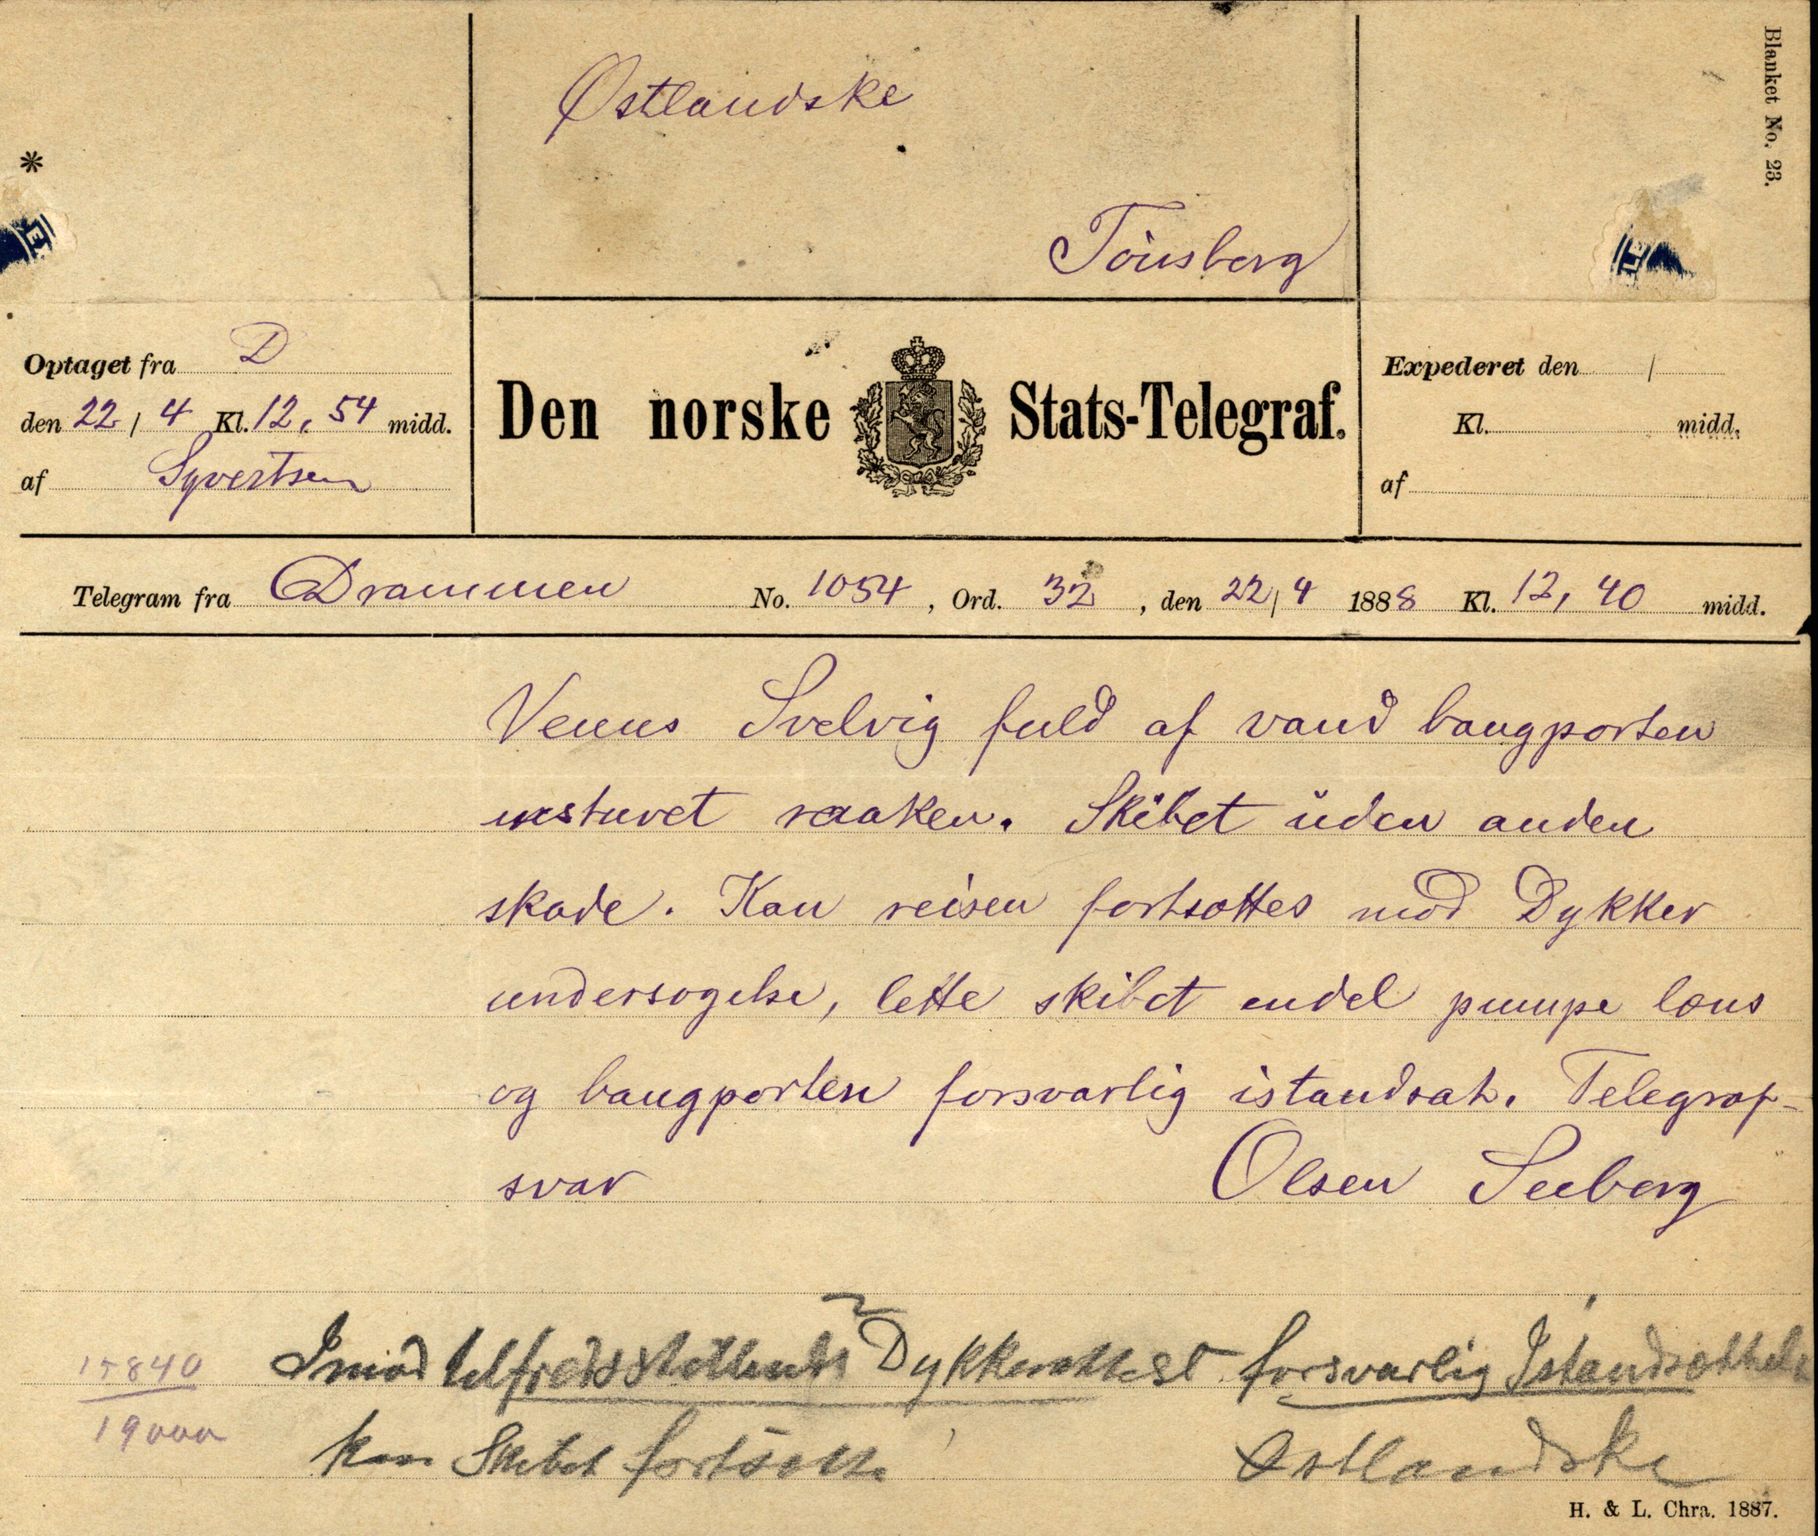 Blanket No. 23.
Østlandske
Tönsberg
*
Optaget fra D
den 22 / 4 Kl. 12,54 midd.
af Syvertsen
Den norske Stats-Telegraf.
Expederet den /
Kl. midd.
af
Telegram fra Drammen No. 1054, Ord. 32, den 22/4 1888 Kl. 12,40 midd.
Venus Svelvig fuld af vand baugporten
skibet üden anden
skade. Kan reisen fortsættes mod Dykker
undersøgelse, lette skibet endel pumpe læns
og baugporten forsvarlig istandsat. Telegraf-
svar Olsen Seeberg
Imod tilfredsstillende Dykkerattest forsvarlig Istandsættelse
kan Skibet fortsætte
Østlandske
15840
19000
H. & L. Chra. 1887.